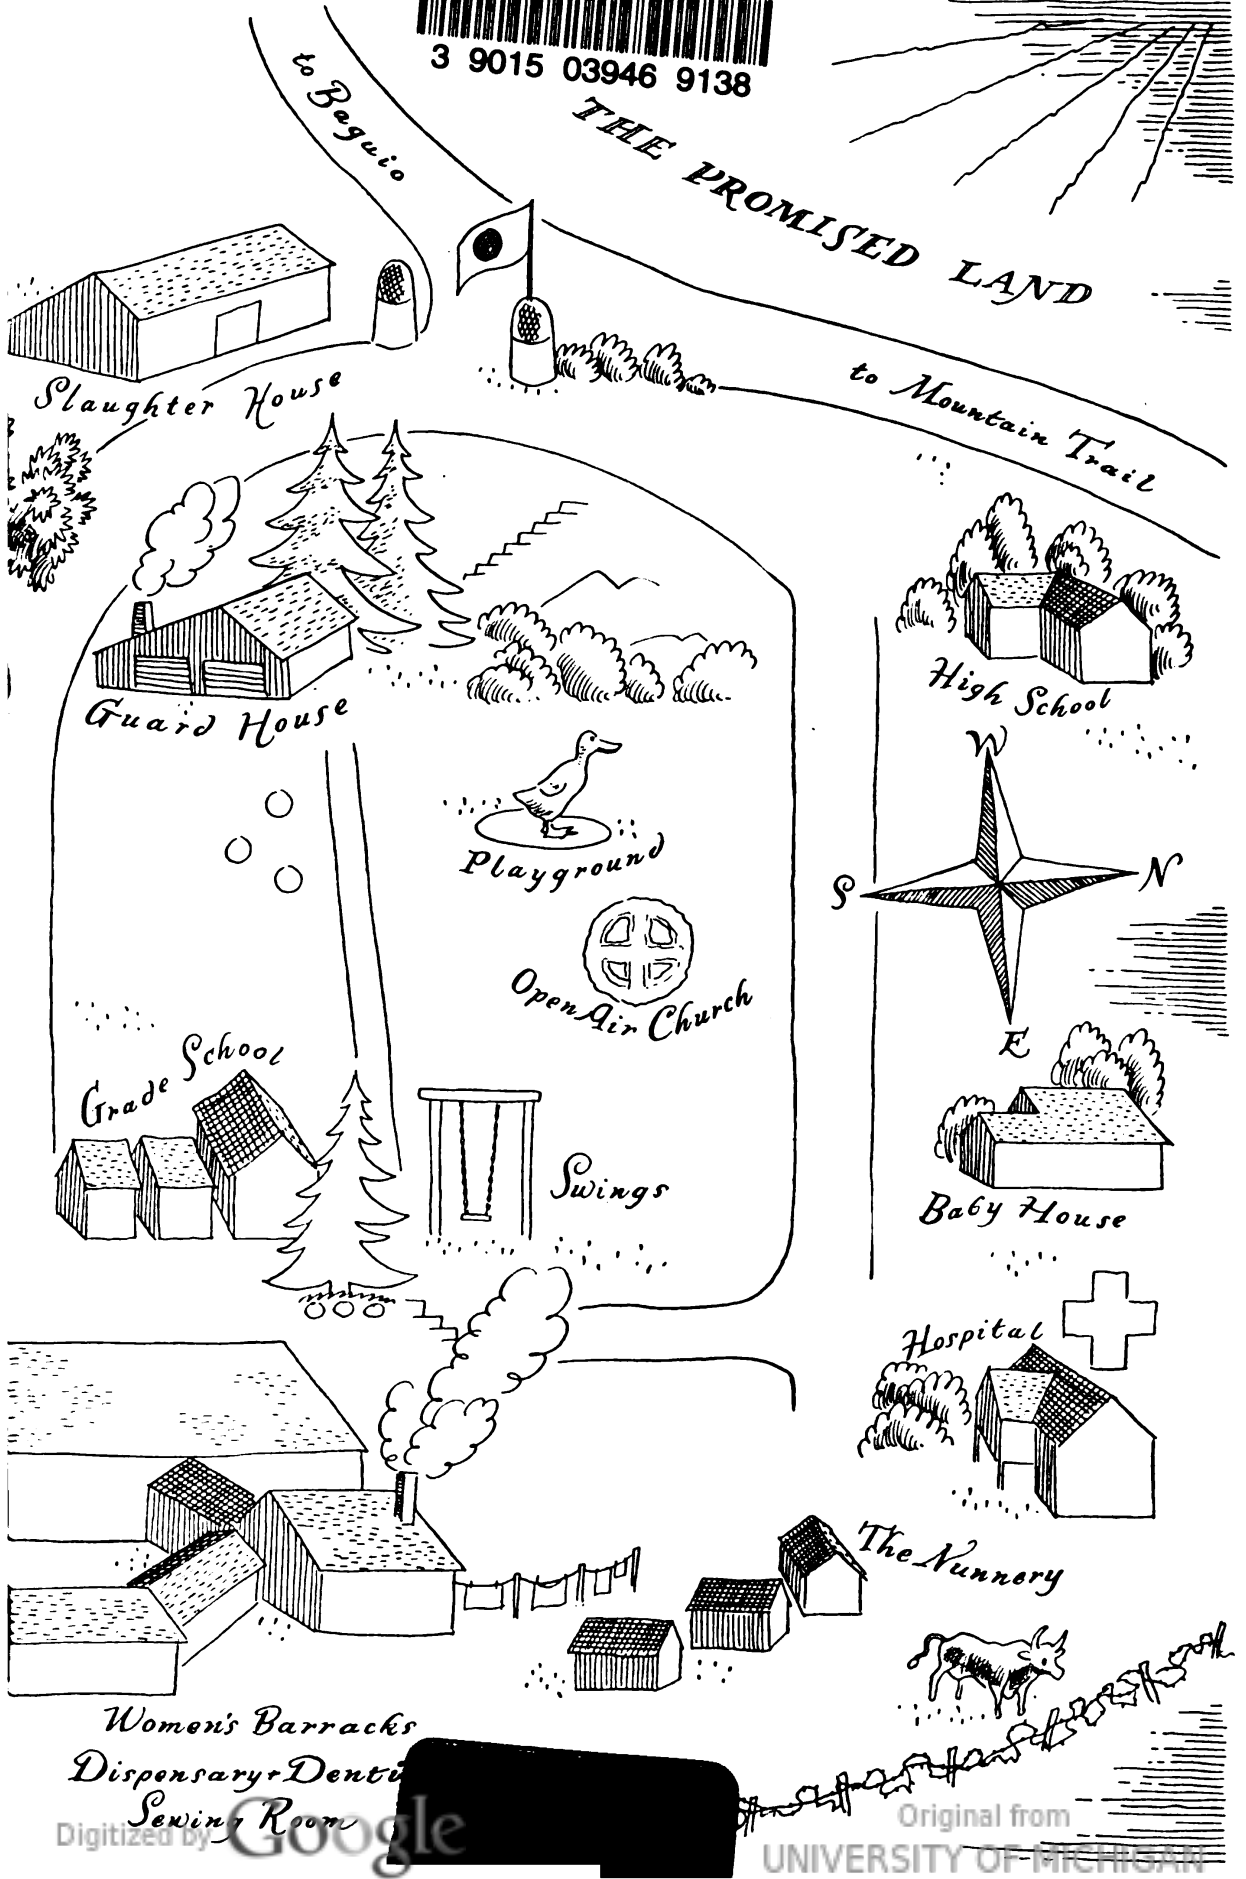 3 9015 03946 9138
to Baguio
THE PROMISED LAND
Slaughter House
to Mountain Trail
Guard House
High School
W
S
N
E
Playground
Open Air Church
Grade School
Swings
Baby House
Hospital
The Nunnery
Women's Barracks
Dispensary +
Sewing Room
Digitized by Google
Original from
UNIVERSITY OF MICHIGAN